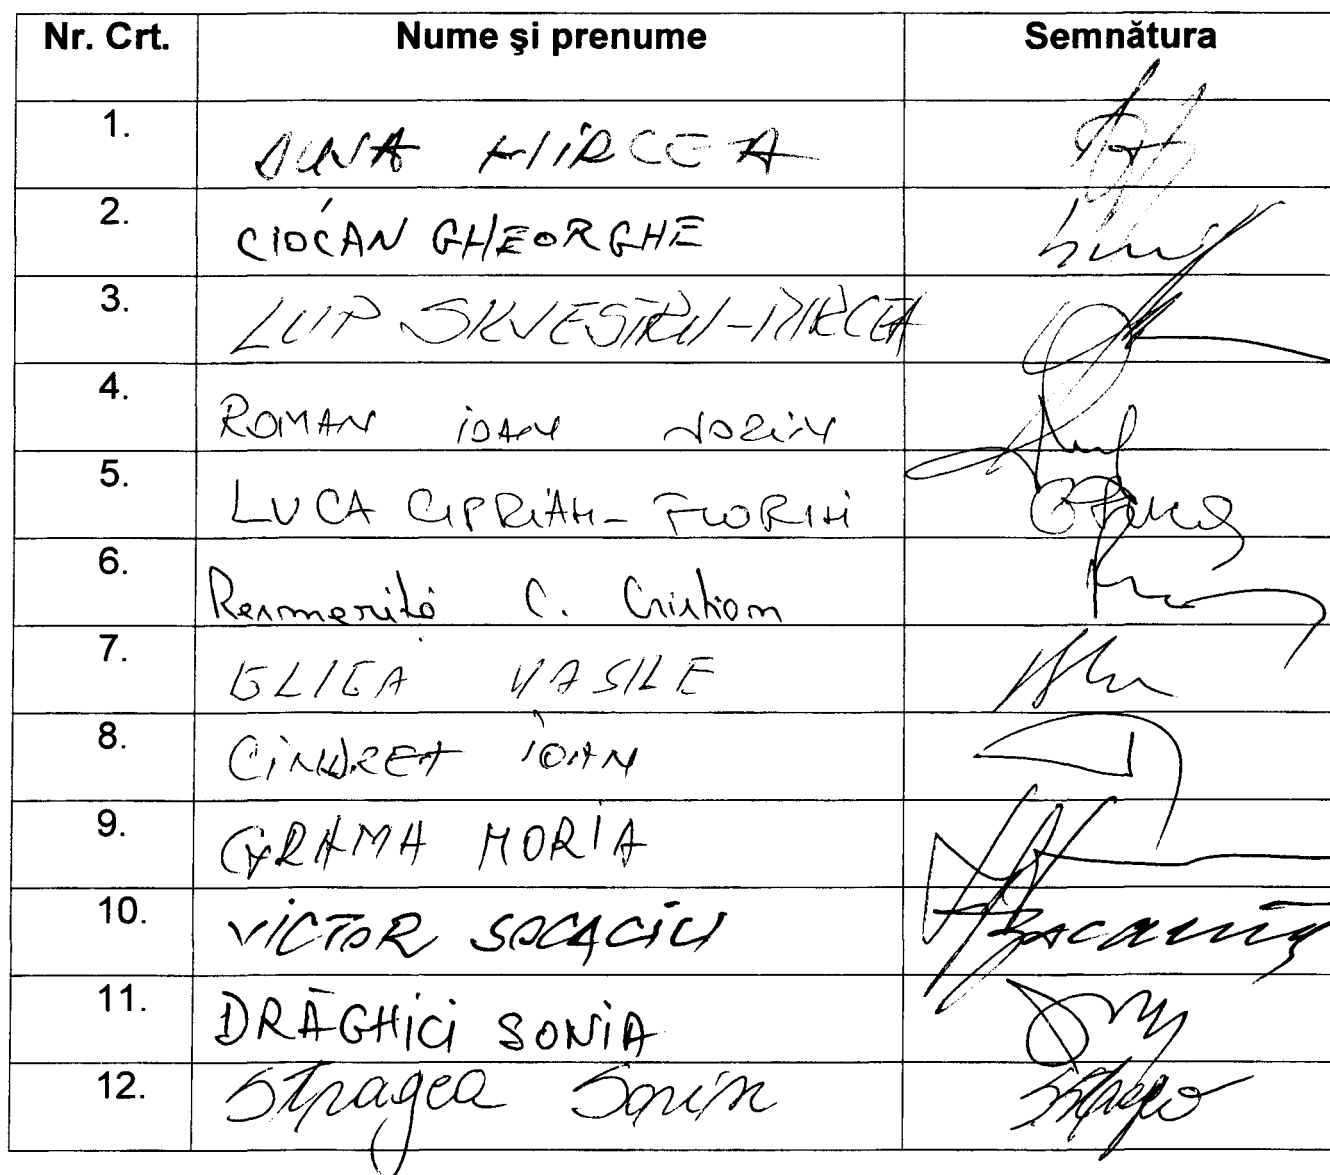 Nr. Crt. Nume şi prenume Semnătura
1. DUȚA MIRCEA
2. CIOCAN GHEORGHE
3. LUP SILVESTRU-MIRCEA
4. ROMAN IOAN SORIN
5. LUCA CIPRIAN-FLORIN
6. Resmeriță C. Cristian
7. GLIGA VASILE
8. CINDREA IOAN
9. GRAMA HORIA
10. VICTOR SOCACIU
11. DRĂGHICI SONIA
12. Stragea Sorin